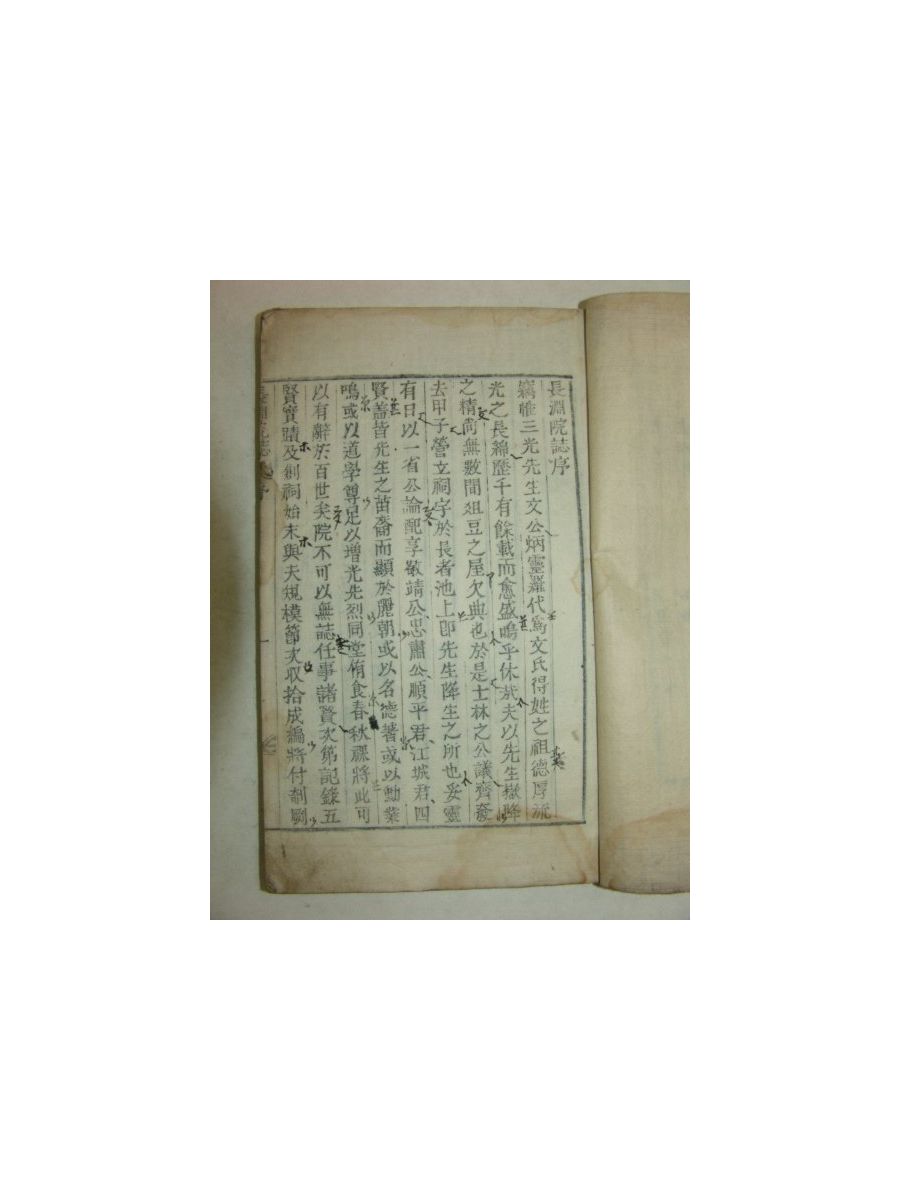 長淵院誌序
竊惟三光先生文公炳靈羅代爲文氏得姓之祖德厚流
光之長綿歷千有餘載而愈盛嗚乎休哉夫以先生嶽降
之精尙無數間俎豆之屋欠典也於是士林之公議齊發
去甲子營立祠宇於長者池上卽先生降生之所也妥靈
有日以一省公論配享敬靖公忠肅公順平君江城君四
賢蓋皆先生之苗裔而顯於麗朝或以名德著或以勳業
鳴或以道學尊足以增光先烈同堂侑食春秋祼將此可
以有辭於百世矣院不可以無誌任事諸賢次第記錄五
賢實蹟及創祠始末與夫規模節次收拾成編將付剞劂
長淵院誌 序 一